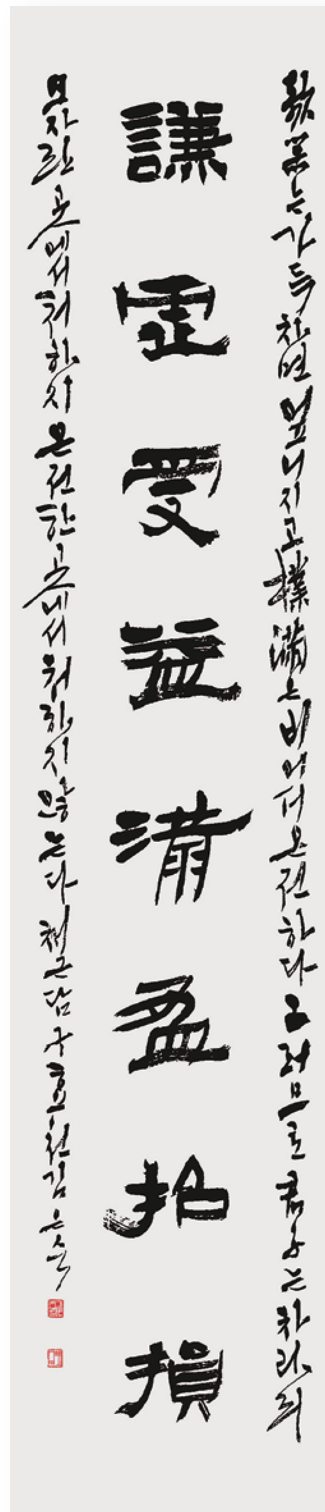 欹器는 가득 차면 엎어지고 撲滿은 비어서 온전하다 그러므로 君子는 차라리
謙虛受益滿盈招損
모자란 곳에서 처하지 온전한 곳에서 처하지 않는다 채근담 구 효천 김은숙